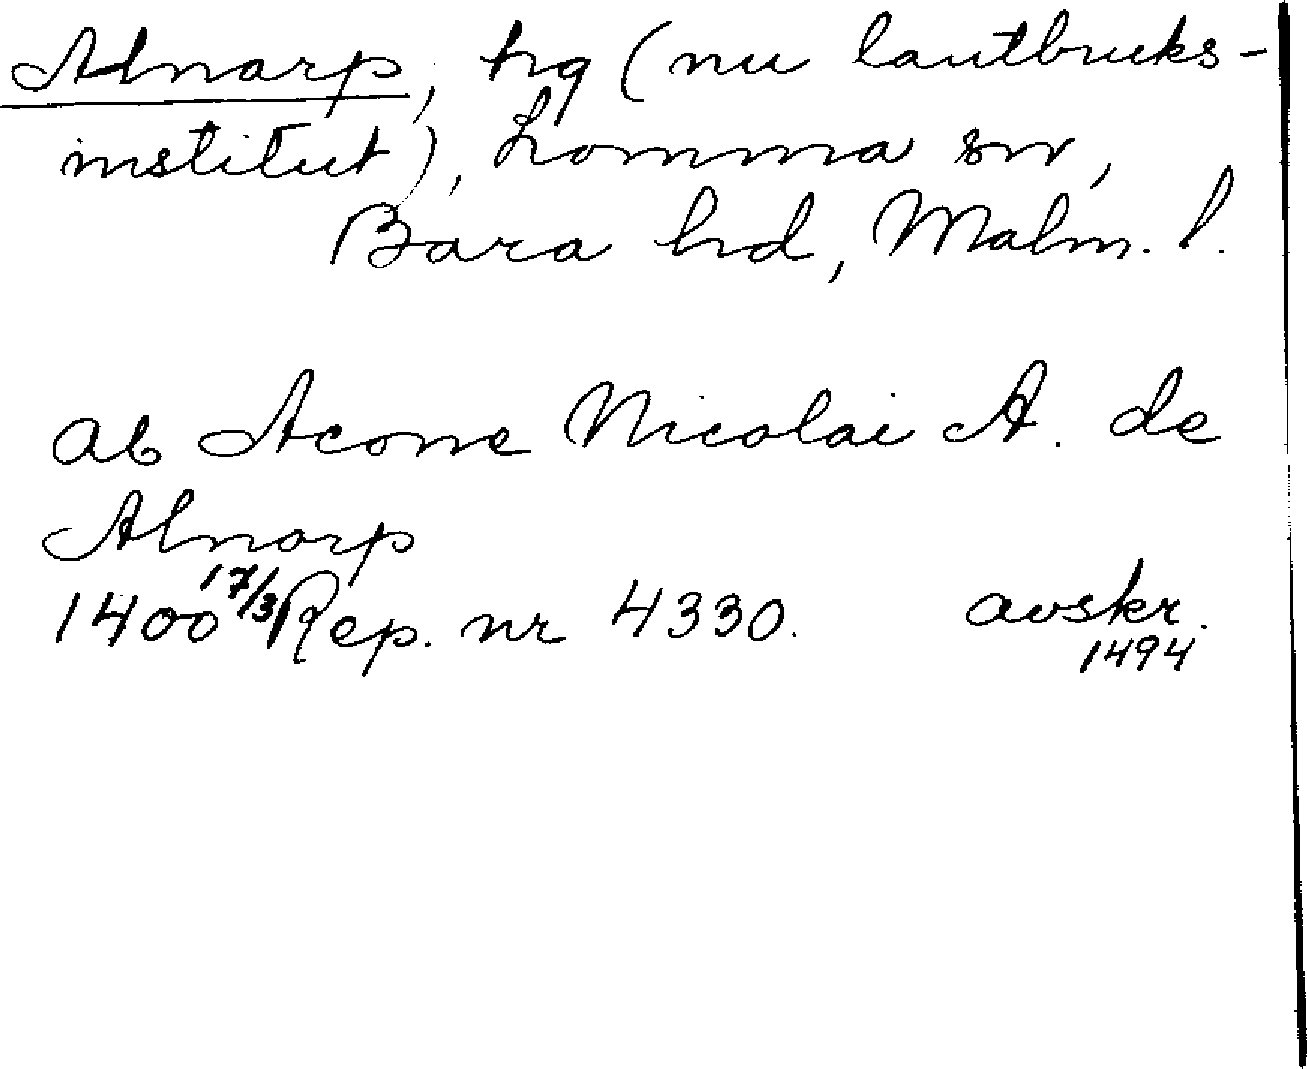 Alnarp, hg (nu lantbruks-
institut), Lomma sn,
Bara hd, Malm. l.
ab Acone Nicolai A. de
Alnarp
1400 17/3 Rep. nr 4330. avskr.
1494